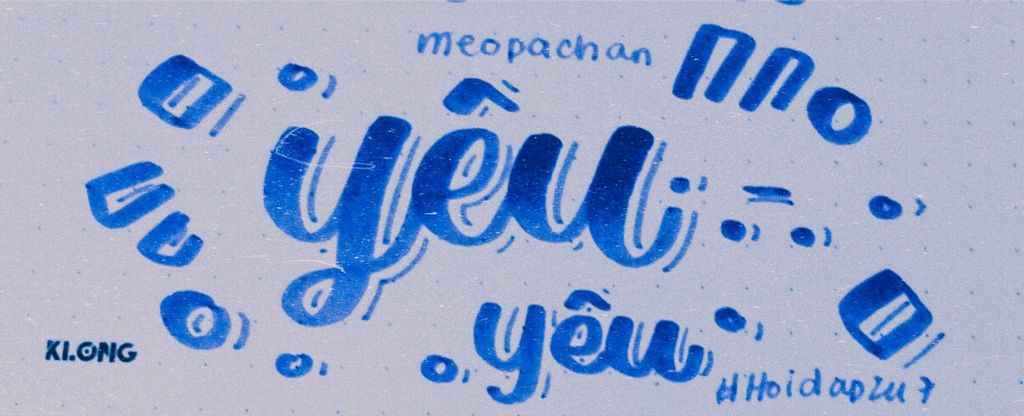 meopachan
yêu
yêu
KLONG
#Hoidap247